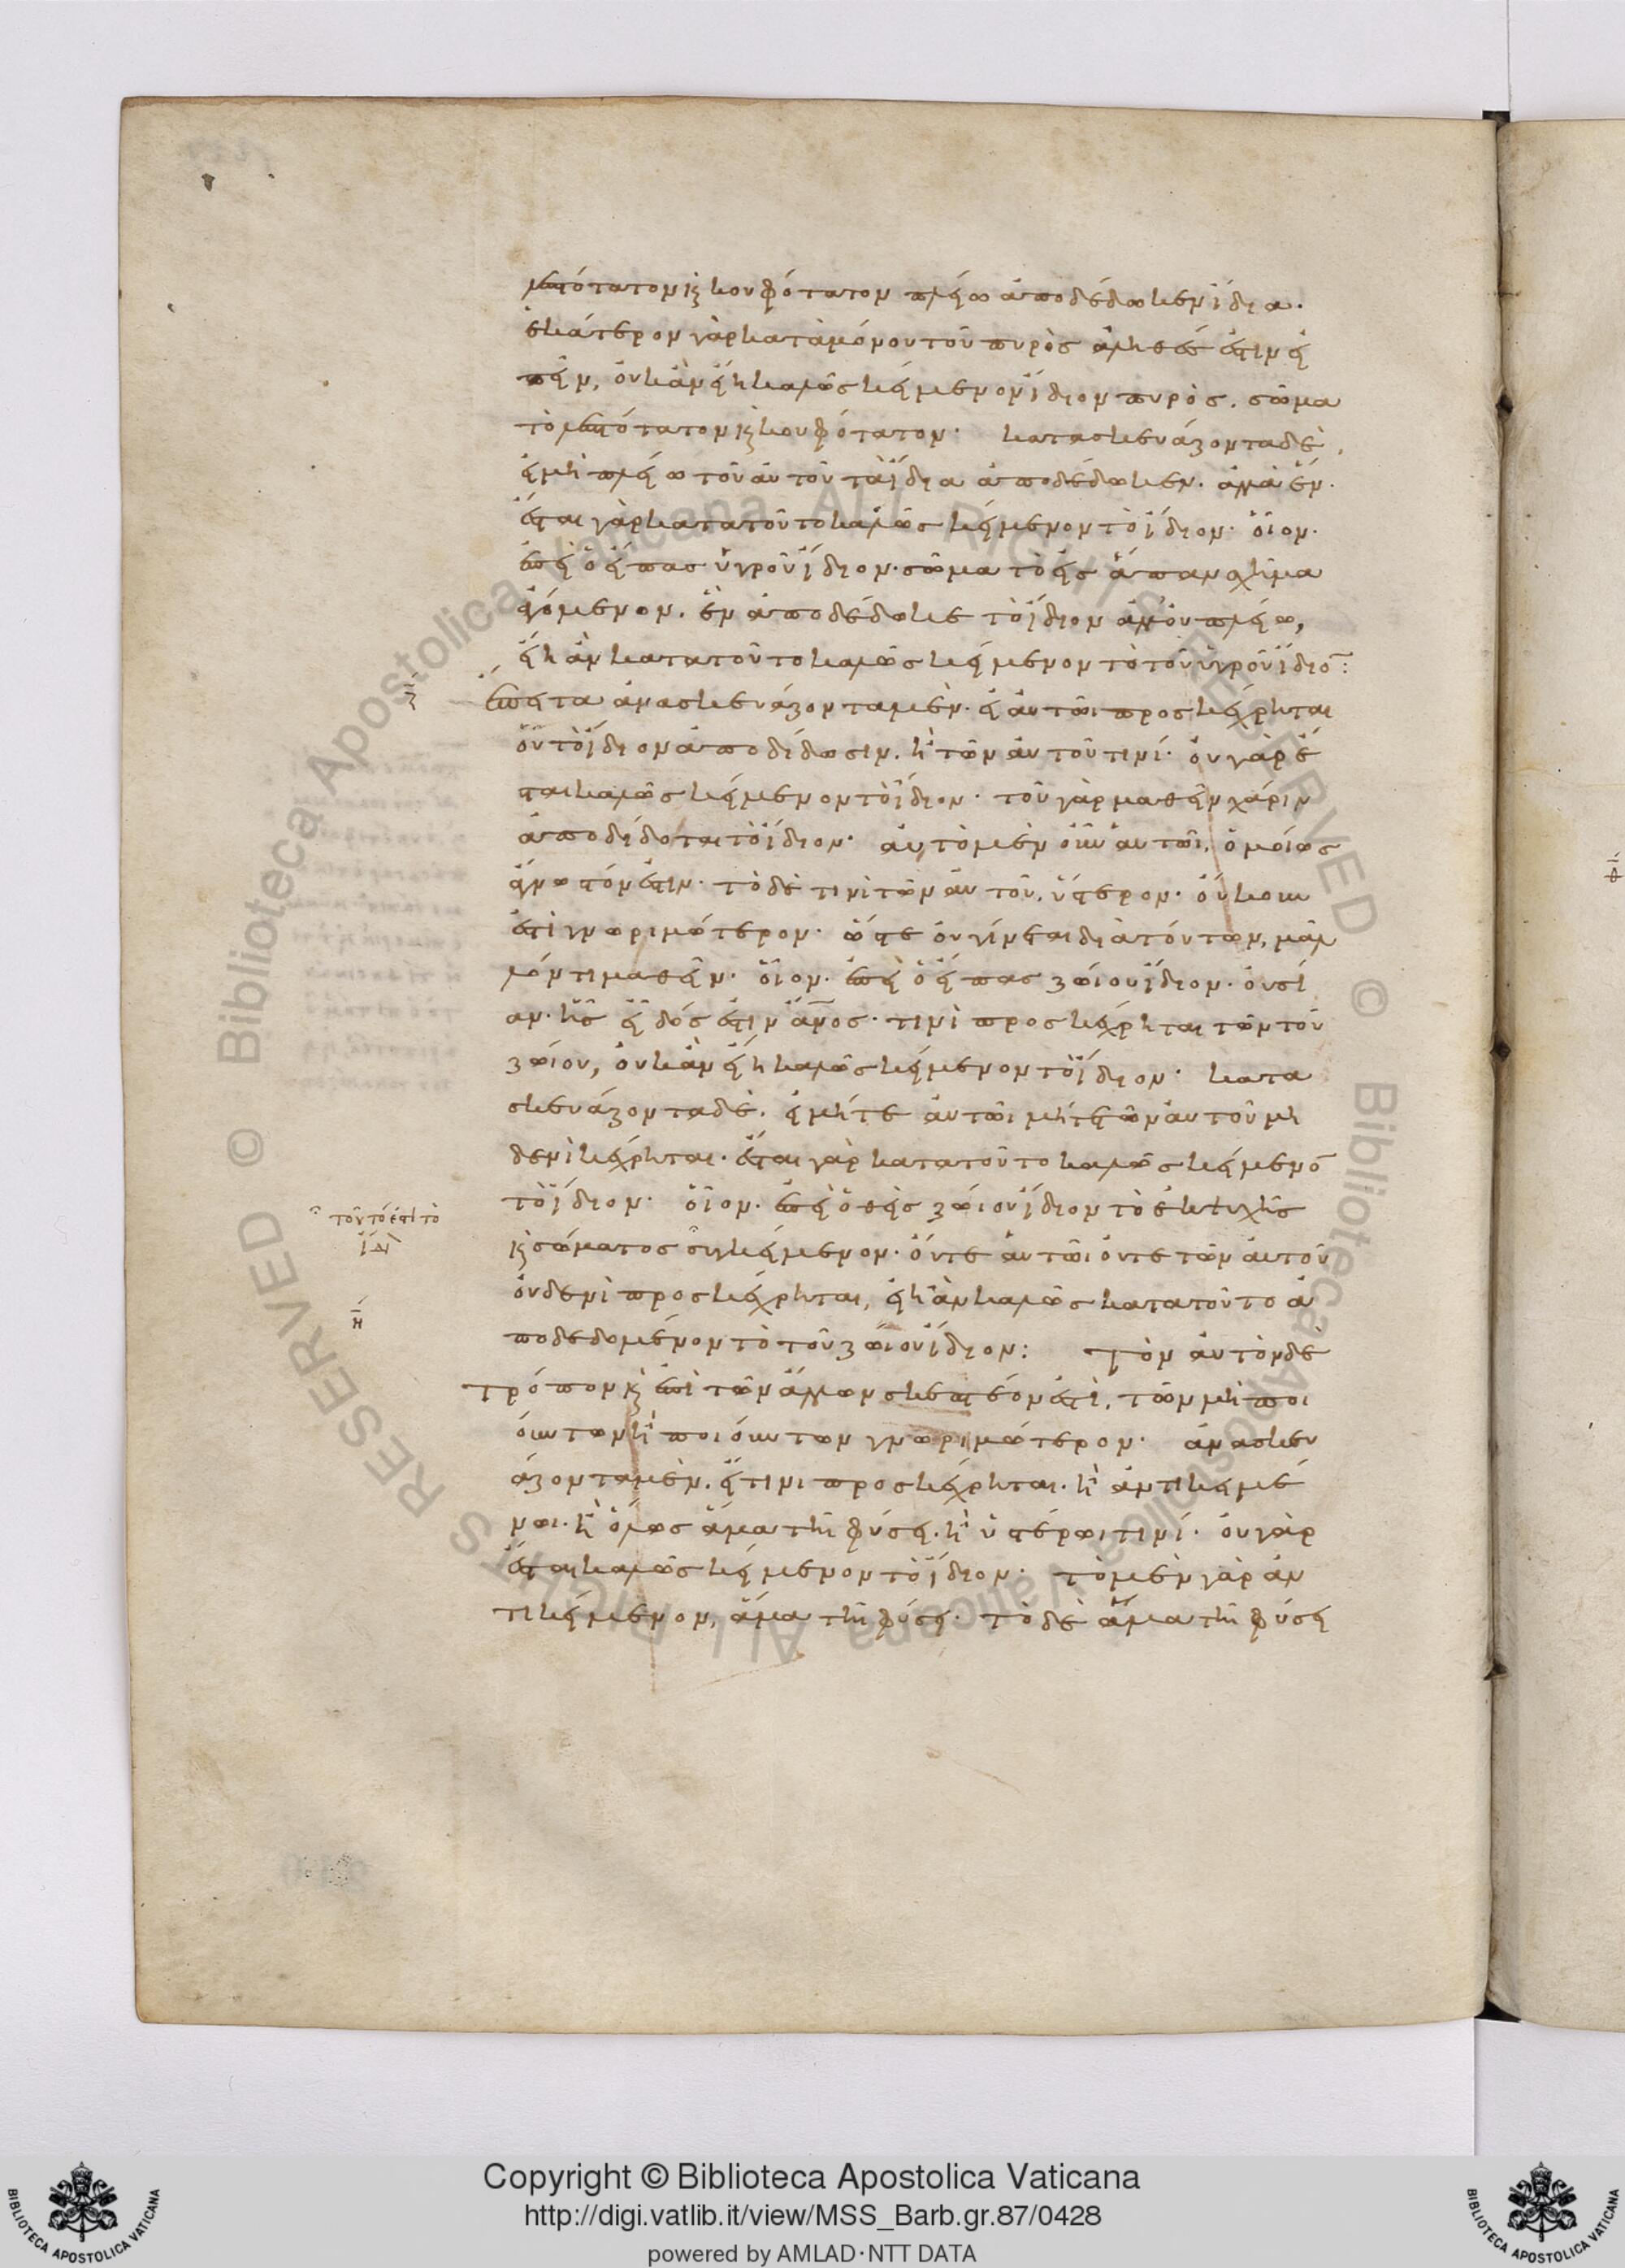 λεπτότατον κ̀ κουφότατον πλείω ἀποδέδωκεν ἴδια.
ἑκάτερον γὰρ κατὰ μόνου τοῦ πυρὸς ἀληθές ἐστιν εἰ
πεῖν, οὐκ ἂν εἴη καλῶς κείμενον ἴδιον πυρὸς. σῶμα
τὸ λεπτότατον κ̀ κουφότατον· κατασκευάζοντα δὲ,
εἰ μὴ πλείω τοῦ αὐτοῦ τὰ ἴδια ἀποδέδωκεν. ἀλλὰ ἕν.
ἔσται γὰρ κατὰ τοῦτο καλῶς κείμενον τὸ ἴδιον· οἷον.
ἐπεὶ ὁ εἴπας ὑγροῦ ἴδιον. σῶμα τὸ εἰς ἅπαν σχῆμα
ἀγόμενον. ἓν ἀποδέδωκε τὸ ἴδιον ἀλλ' οὐ πλείω,
εἴη ἂν κατὰ τοῦτο καλῶς κείμενον τὸ τοῦ ὑγροῦ ἴδιο̄:
ζ̄ ἔπειτα ἀνασκευάζοντα μὲν. εἰ αὐτῶι προσκέχρηται
οὗ τὸ ἴδιον ἀποδίδωσιν. ἢ τῶν αὐτοῦ τινί· οὐ γὰρ ἔ
σται καλῶς κείμενον τὸ ἴδιον· τοῦ γὰρ μαθεῖν χάριν
ἀποδίδοται τὸ ἴδιον· αὐτὸ μὲν οὖν αὑτῶι, ὁμοίως
ἄγνωστόν ἐστιν· τὸ δὲ τινὶ τῶν αὐτοῦ, ὕστερον· οὔκουν
ἐστὶ γνωριμώτερον· ὥστε οὐ γίνεται διὰ τούτων, μᾶλ
λόν τι μαθεῖν· οἷον. ἐπεὶ ὁ εἴπας ζώιου ἴδιον. οὐσί
αν. ἧς εἶδός ἐστιν ἄν̅ος· τινὶ προσκέχρηται τῶν τοῦ
ζώιου, οὐκ ἂν εἴη καλῶς κείμενον τὸ ἴδιον· κατα
σκευάζοντα δὲ. εἰ μήτε αὐτῶι μήτε τῶν αὐτοῦ μη
δενὶ κέχρηται. ἔσται γὰρ κατὰ τοῦτο καλῶς κείμενο̄
τὸ ἴδιον· οἷον. ἐπεὶ ὁ θεὶς ζώιου ἴδιον τὸ ἐκ ψυχῆς
τοῦτό ἐστι τὸ
ἴδι
κ̀ σώματος συγκείμενον· οὔτε αὐτῶι οὔτε τῶν αὐτοῦ
οὐδενὶ προσκέχρηται, εἴη ἂν καλῶς κατὰ τοῦτο ἀ
η̄ ποδεδομένον τὸ τοῦ ζώιου ἴδιον: Τὸν αὐτὸν δὲ
τρόπον κ̀ ἐπὶ τῶν ἄλλων σκεπτέον ἐστὶ, τῶν μὴ ποι
ούντων ἢ ποιούντων γνωριμώτερον· ἀνασκευ
άζοντα μὲν. εἴ τινι προσκέχρηται. ἢ ἀντικειμέ
νωι. ἢ ὅλως ἅμα τῆι φύσει. ἢ ὑστέρωι τινί· οὐ γὰρ
ἔσται καλῶς κείμενον τὸ ἴδιον· τὸ μὲν γὰρ ἀν
τικείμενον, ἅμα τῆι φύσει· τὸ δὲ ἅμα τῆι φύσει
φ̄
Copyright © Biblioteca Apostolica Vaticana
http://digi.vatlib.it/view/MSS_Barb.gr.87/0428
powered by AMLAD·NTT DATA
BIBLIOTECA APOSTOLICA VATICANA
BIBLIOTECA APOSTOLICA VATICANA
© Biblioteca Apostolica Vaticana ALL RIGHTS RESERVED
© Biblioteca Apostolica Vaticana ALL RIGHTS RESERVED